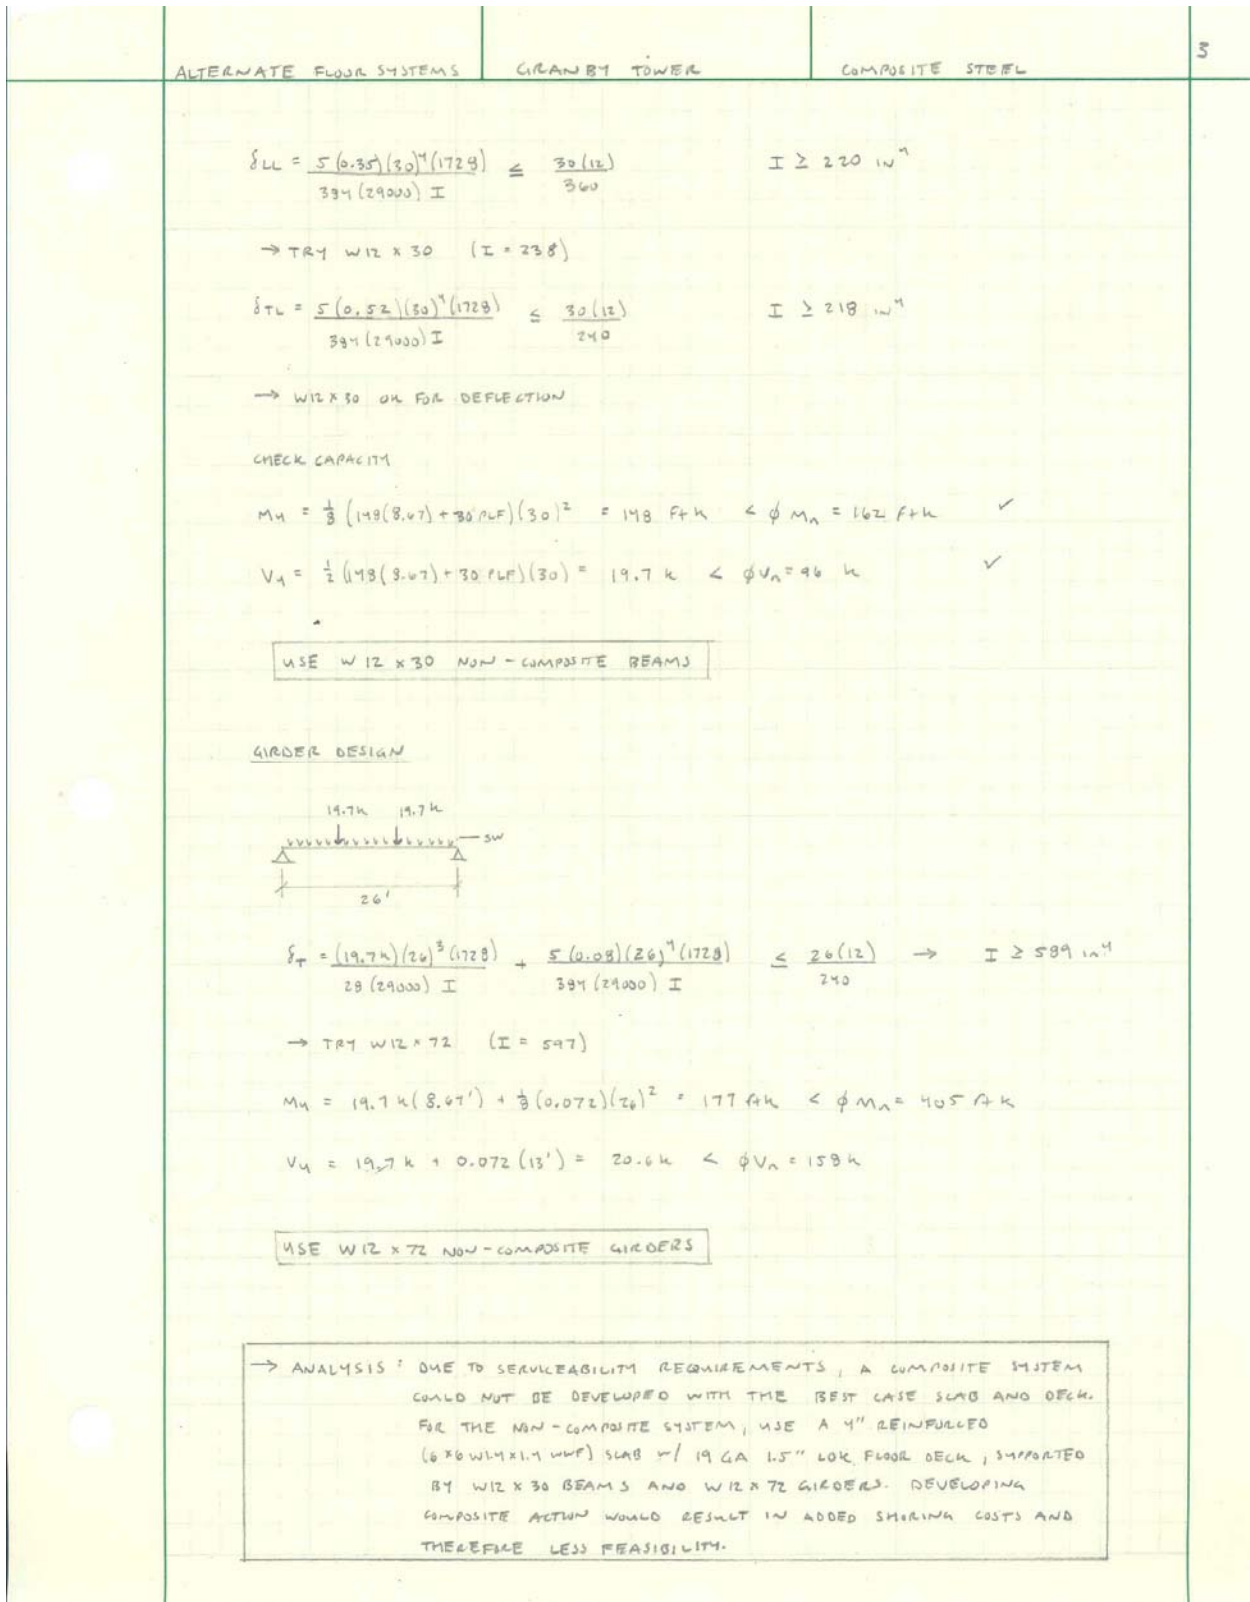 3
ALTERNATE FLOOR SYSTEMS GRANBY TOWER COMPOSITE STEEL
δLL = 5(0.35)(30)⁴(1728) / 384(29000) I ≤ 30(12) / 360 I ≥ 220 IN⁴
→ TRY W12 x 30 (I = 238)
δTL = 5(0.52)(30)⁴(1728) / 384(29000) I ≤ 30(12) / 240 I ≥ 218 IN⁴
→ W12 x 30 OK FOR DEFLECTION
CHECK CAPACITY
Mu = 1/8 (148(8.67) + 30 PLF)(30)² = 148 ft k < φMn = 162 ft k ✓
Vu = 1/2 (148(8.67) + 30 PLF)(30) = 19.7 k < φVn = 96 k ✓
USE W 12 x 30 NON-COMPOSITE BEAMS
GIRDER DESIGN
19.7k 19.7k
SW
26'
δT = (19.7k)(26)³(1728) / 28(29000) I + 5(0.08)(26)⁴(1728) / 384(29000) I ≤ 26(12) / 240 → I ≥ 589 in⁴
→ TRY W12 x 72 (I = 597)
Mu = 19.7 k(8.67') + 1/8 (0.072)(26)² = 177 ft k < φMn = 405 ft k
Vu = 19.7 k + 0.072(13') = 20.6 k < φVn = 158 k
USE W12 x 72 NON-COMPOSITE GIRDERS
→ ANALYSIS: DUE TO SERVICEABILITY REQUIREMENTS, A COMPOSITE SYSTEM
COULD NOT BE DEVELOPED WITH THE BEST CASE SLAB AND DECK.
FOR THE NON-COMPOSITE SYSTEM, USE A 4" REINFORCED
(6x6 W1.4x1.4 WWF) SLAB w/ 19 GA 1.5" LOK FLOOR DECK, SUPPORTED
BY W12 x 30 BEAMS AND W12 x 72 GIRDERS. DEVELOPING
COMPOSITE ACTION WOULD RESULT IN ADDED SHORING COSTS AND
THEREFORE LESS FEASIBILITY.